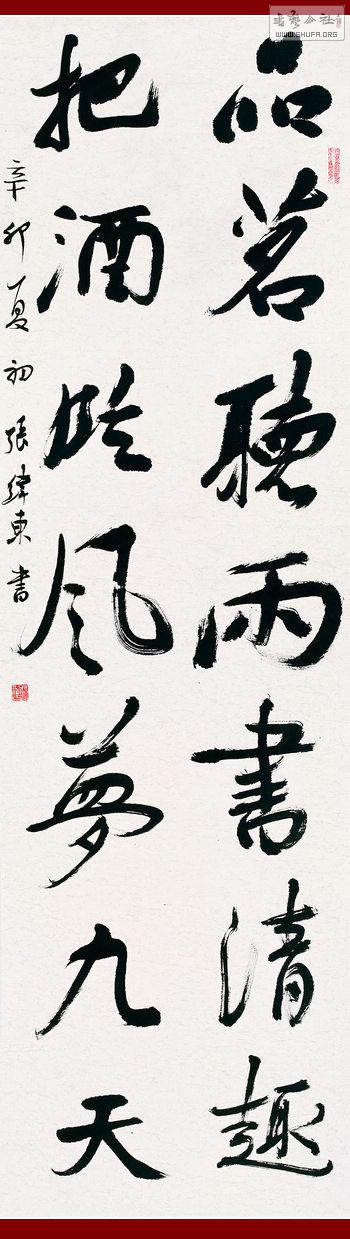 品茗聽雨書清趣
把酒吟风夢九天
辛卯夏初張緯東書
WWW.SHUFA.ORG